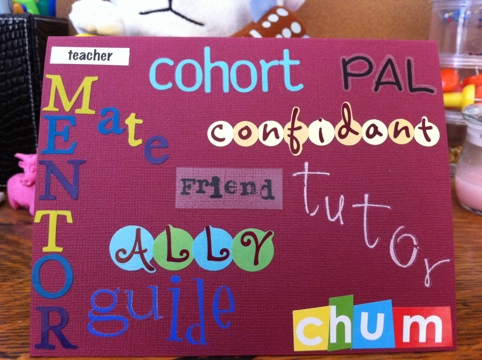 teacher
cohort
PAL
MENTOR
Mate
confidant
Friend
tutor
ALLY
guide
chum